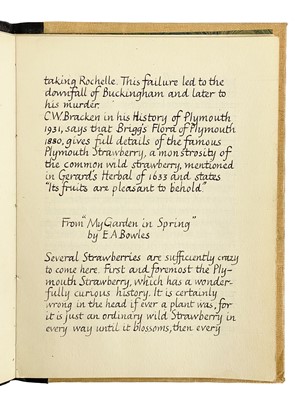 taking Rochelle. This failure led to the
downfall of Buckingham and later to
his murder.
C.W. Bracken in his History of Plymouth
1931, says that Brigg's Flora of Plymouth
1880, gives full details of the famous
Plymouth Strawberry, a monstrosity of
the common wild strawberry, mentioned
in Gerard's Herbal of 1633 and states
"Its fruits are pleasant to behold"
From "My Garden in Spring"
by E A Bowles
Several Strawberries are sufficiently crazy
to come here. First and foremost the Ply-
mouth Strawberry, which has a wonder-
fully curious history. It is certainly
wrong in the head if ever a plant was, for
it is just an ordinary wild Strawberry in
every way until it blossoms, then every